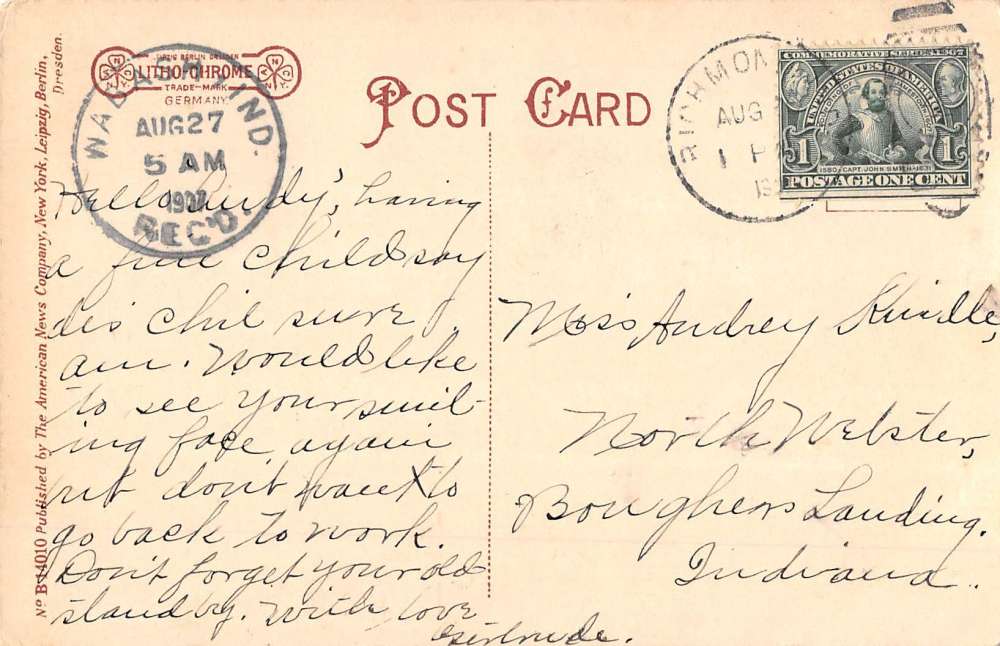 LEIPZIG BERLIN DRESDEN
LITHO-CHROME
TRADE-MARK
GERMANY
N.Y.C.
WABASH, IND.
AUG 27
5 AM
1907
REC'D.
POST CARD
RICHMON
AUG
1 P
19
COMMEMORATIVE SERIES 1907
UNITED STATES OF AMERICA
1 1
1580 CAPT. JOHN SMITH 1631
POSTAGE ONE CENT
No B 14010 Published by The American News Company, New York, Leipzig, Berlin,
Dresden.
Hello having
a fine child say
dis chil sure
am. Would like
to see your smil-
ing face again
but don't want to
go back to work.
Don't forget your old
stand by. With love
Gertrude.
Miss Audrey
North Webster,
Landing.
Indiana.